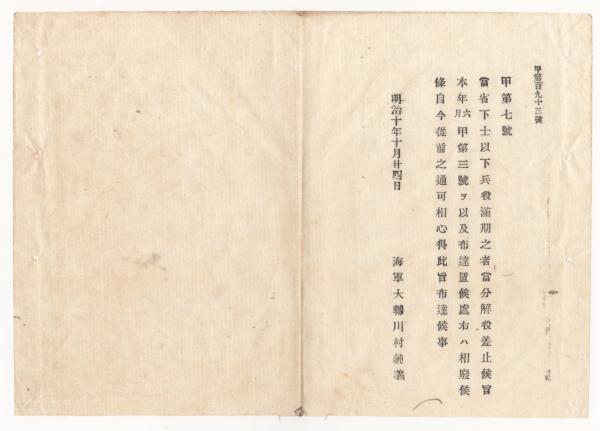 甲第百九十三號
甲第七號
當省下士以下兵役滿期之者當分解役差止候旨
本年六月甲第三號ヲ以及布達置候處右ハ相廢候
條自今從前之通可相心得此旨布達候事
明治十年十月廿四日
海軍大輔川村純義